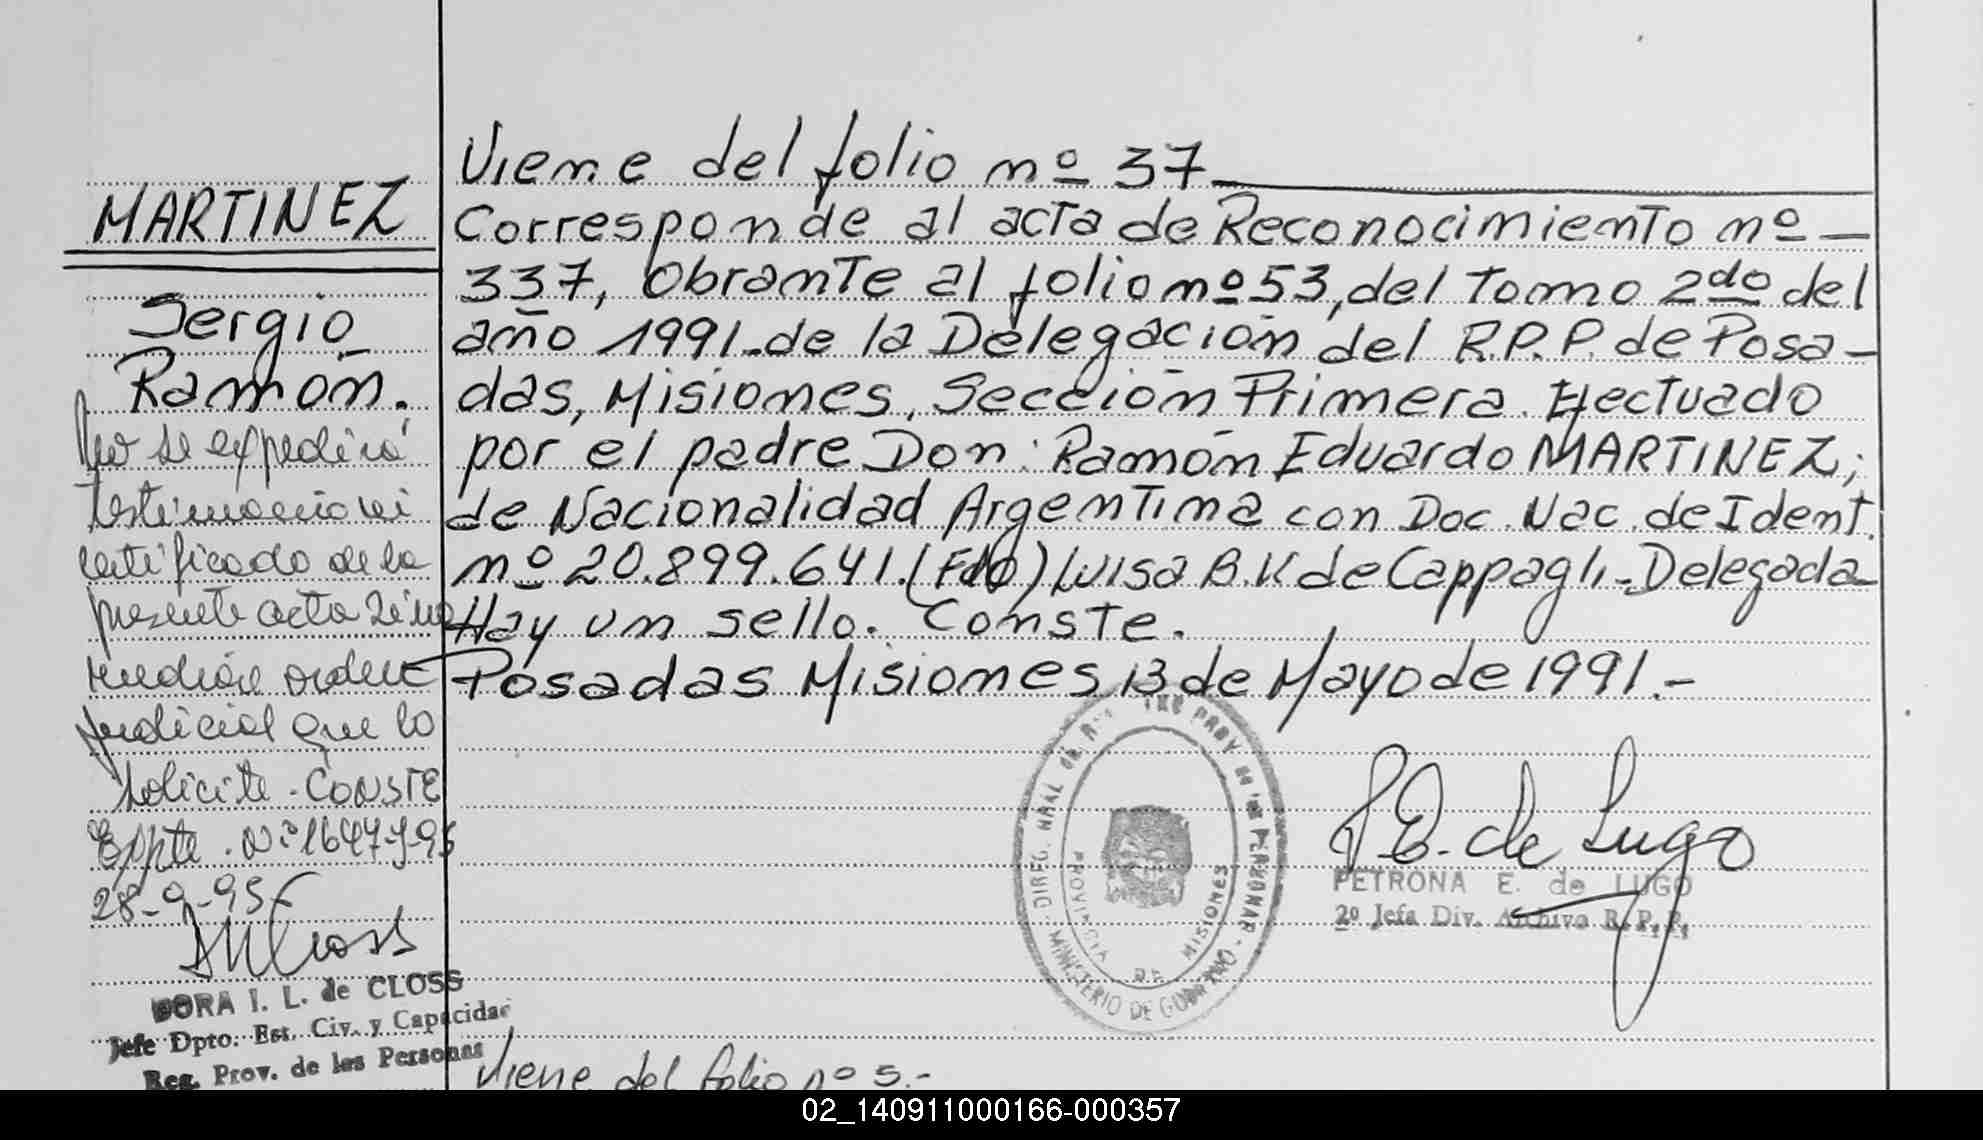 MARTINEZ
Sergio
Ramón.
No se expedirá
testimonio ni
certificado de la
presente acta sin
mediar orden
judicial que lo
solicite - CONSTE
Expte. Nº 1647-J-95
28-9-95
DORA I. L. de CLOSS
Jefe Dpto. Est. Civ. y Capacidad
Reg. Prov. de las Personas
Viene del folio nº 37
Corresponde al acta de Reconocimiento nº —
337, Obrante al folio nº 53, del Tomo 2do del
año 1991 - de la Delegación del R.P.P. de Posa-
das, Misiones, Sección Primera. Efectuado
por el padre Don: Ramón Eduardo MARTINEZ;
de Nacionalidad Argentina con Doc. Nac. de Ident.
nº 20.899.641. (Fdo) Luisa B. V. de Cappagli - Delegada
Hay un sello. Conste.
Posadas Misiones 13 de Mayo de 1991.-
P. E. de Lugo
PETRONA E. de LUGO
2º Jefa Div. Archivo R. P. P.
PROVINCIA DE MISIONES
MINISTERIO DE GOBIERNO
Viene del folio nº 5.-
02_140911000166-000357